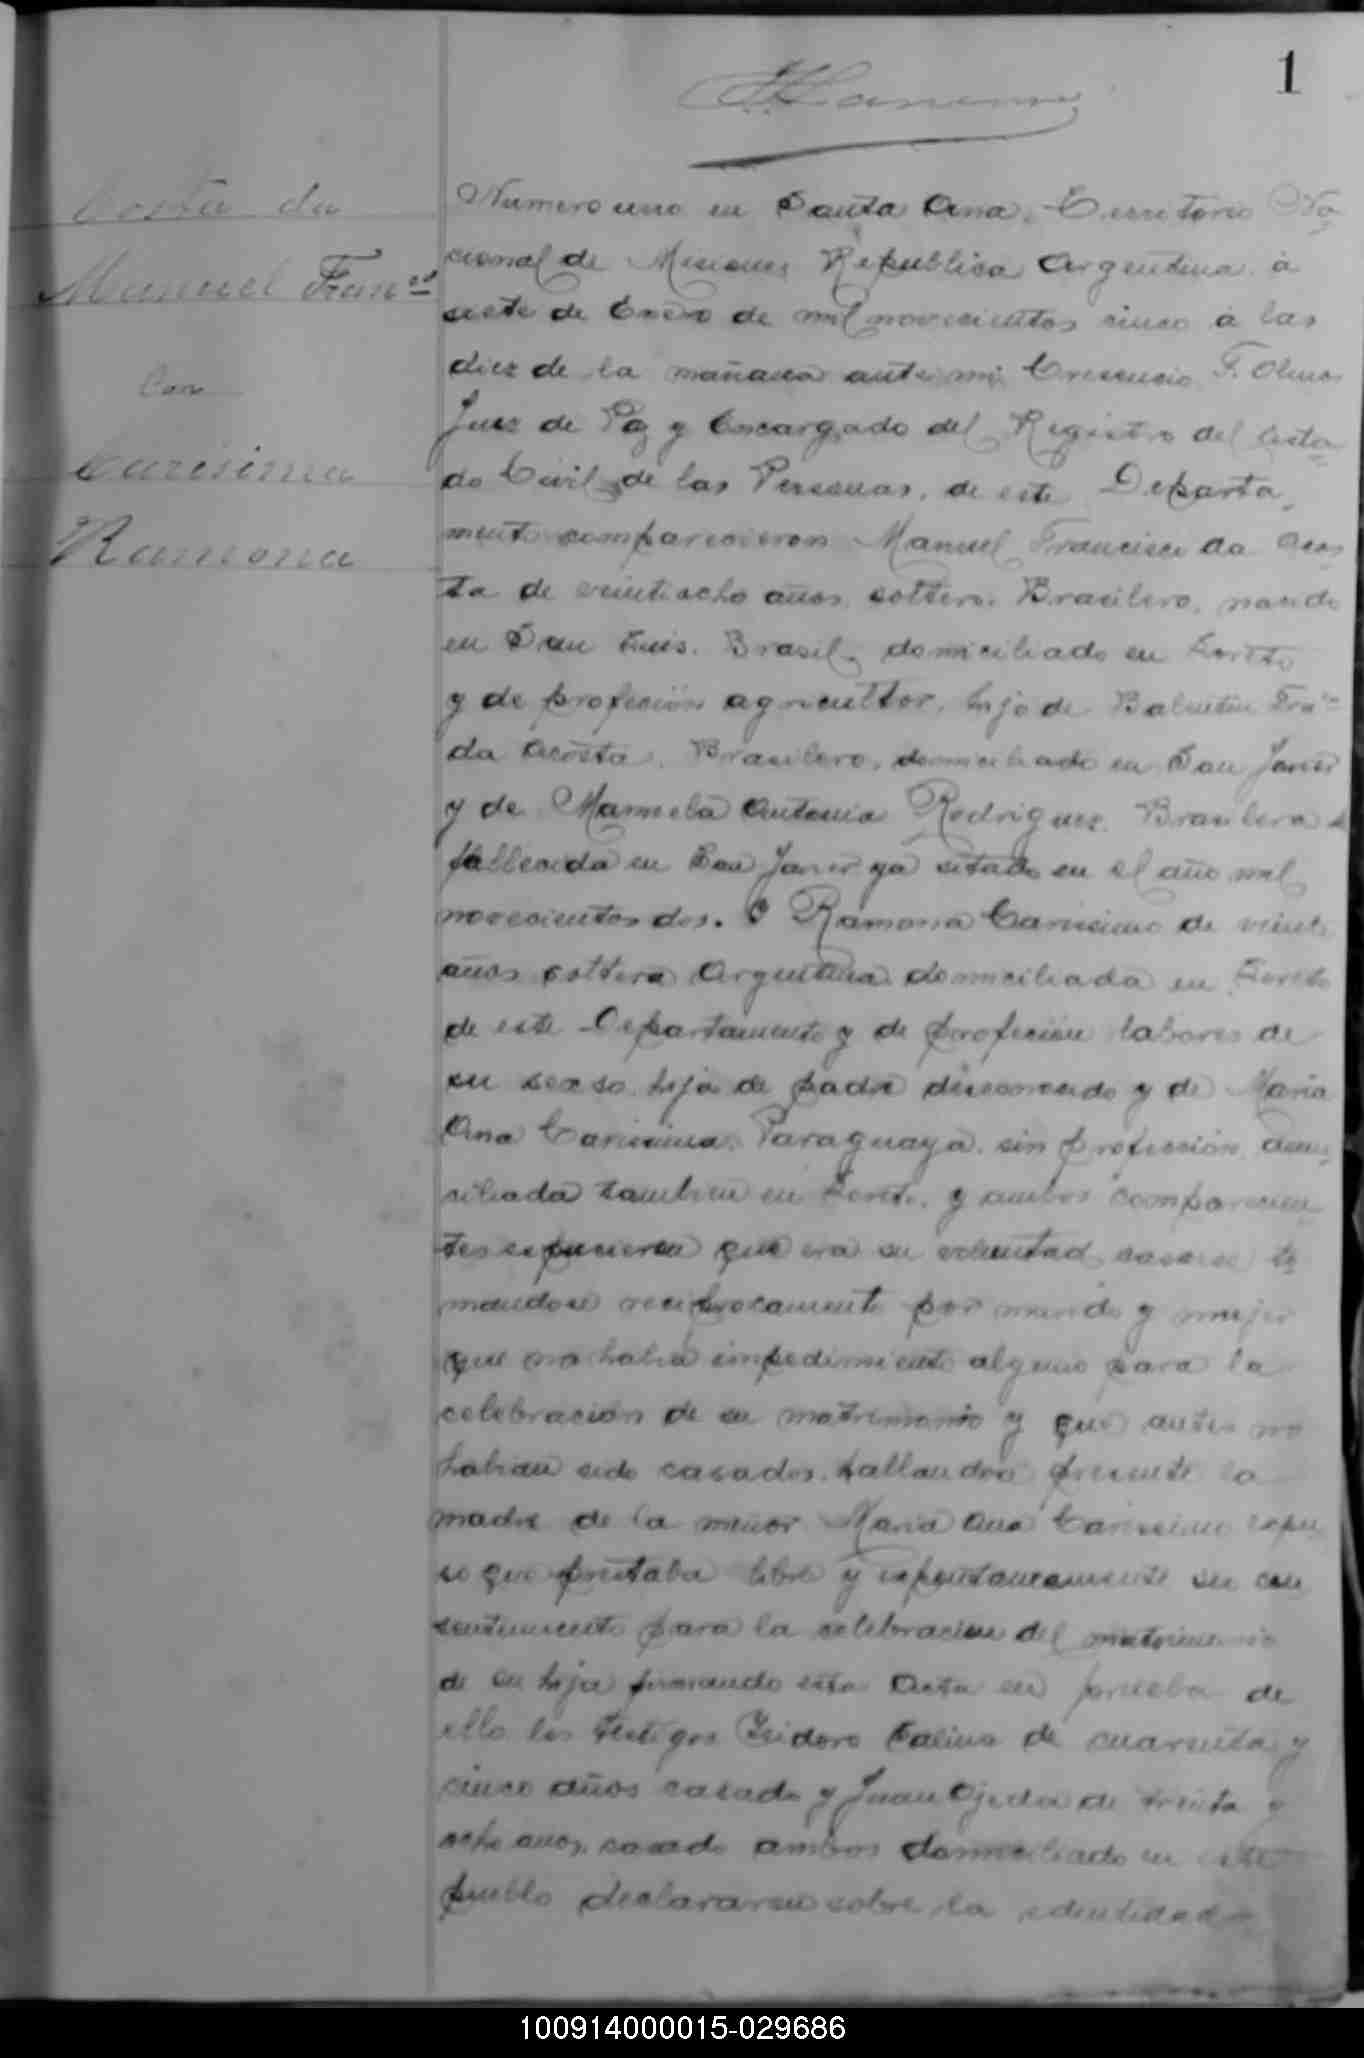 1
Costa da
Manuel Fran.co
Con
Carisima
Ramona
Numero uno en Santa Ana, Territorio Na
cional de Misiones Republica Argentina à
siete de Enero de mil novecientos cinco à las
diez de la mañana ante mi, Crescencio F. Olmos
Juez de Paz y Encargado del Registro del Esta
do Civil de las Personas, de este Departa
mento comparecieron Manuel Francisco da Acos
ta de veintiocho años, soltero. Brasilero, nacido
en San Luis. Brasil, domiciliado en Loreto
y de profeción agricultor, hijo de Balentin Fran.co
da Acosta, Brasilero, domiciliado en San Javier
y de Manuela Antonia Rodriguez, Brasilera
fallecida en San Javier ya sitado en el año mil
novecientos dos. Y Ramona Carisimo de veinte
años soltera Argentina domiciliada en Loreto
de este Departamento y de profeción labores de
su sexso, hija de padre desconocido y de Maria
Ana Carisima, Paraguaya, sin profesión, domi
ciliada tambien en Loreto, y ambos comparecien
tes espucieron que era su voluntad casarse to
mandose reciprocamente por marido y mujer
que no habia impedimiento alguno para la
celebración de su matrimonio y que antes no
habian sido casados. hallandose presente la
madre de la menor Maria Ana Carisimo espu
so que prestaba libre y espontaneamente su con
sentimiento para la celebracion del matrimonio
de su hija firmando esta Acta en prueba de
ello los testigos Isidoro Salina de cuarenta y
cinco años casado y Juan Ojeda de treinta y
ocho años, casado ambos domiciliado en este
pueblo declararon sobre la identidad
100914000015-029686